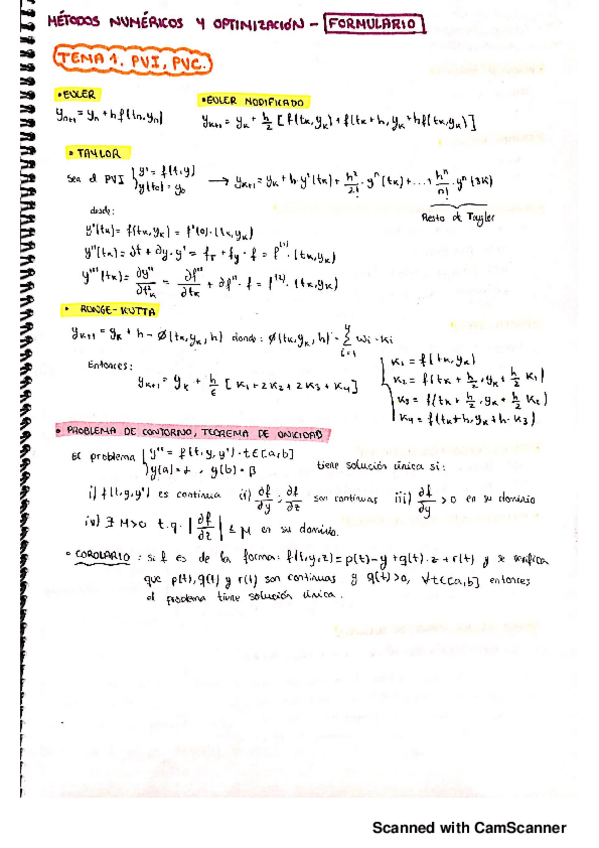 MÉTODOS NUMÉRICOS Y OPTIMIZACIÓN - FORMULARIO
TEMA 1. PVI, PVC.
• EULER
• EULER MODIFICADO
yₙ₊₁ = yₙ + h f(tₙ, yₙ)
yₖ₊₁ = yₖ + h/2 [f(tₖ, yₖ) + f(tₖ + h, yₖ + h f(tₖ, yₖ))]
• TAYLOR
Sea el PVI { y' = f(t, y) y(t₀) = y₀ → yₖ₊₁ = yₖ + h · y'(tₖ) + h²/2! · y''(tₖ) + ... + hⁿ/n! · yⁿ(ξₖ)
Resto de Taylor
donde:
y'(tₖ) = f(tₖ, yₖ) = f'⁽⁰⁾ · (tₖ, yₖ)
y''(tₖ) = ∂t + ∂y · y' = f_T + f_y · f = f⁽¹⁾ · (tₖ, yₖ)
y'''(tₖ) = ∂y''/∂t²ₖ = ∂f''/∂tₖ + ∂f'' · f = f⁽²⁾ · (tₖ, yₖ)
• RUNGE-KUTTA
yₖ₊₁ = yₖ + h - ∅(tₖ, yₖ, h) donde: ∅(tₖ, yₖ, h) = Σ⁴ᵢ₌₁ wᵢ · kᵢ
Entonces:
yₖ₊₁ = yₖ + h/6 [K₁ + 2K₂ + 2K₃ + K₄]
K₁ = f(tₖ, yₖ)
K₂ = f(tₖ + h/2, yₖ + h/2 K₁)
K₃ = f(tₖ + h/2, yₖ + h/2 K₂)
K₄ = f(tₖ + h, yₖ + h · K₃)
• PROBLEMA DE CONTORNO, TEOREMA DE UNICIDAD
El problema { y'' = f(t, y, y') · t ∈ [a, b] y(a) = α, y(b) = β tiene solución única si:
i) f(t, y, y') es continua ii) ∂f/∂y ; ∂f/∂z son continuas iii) ∂f/∂y > 0 en su dominio
iv) ∃ M > 0 t.q. |∂f/∂z| ≤ M en su dominio.
• COROLARIO: si f es de la forma: f(t, y, z) = p(t) - y + q(t) · z + r(t) y se verifica
que p(t), q(t) y r(t) son continuas y q(t) > 0, ∀t ∈ [a, b] entonces
el problema tiene solución única.
Scanned with CamScanner